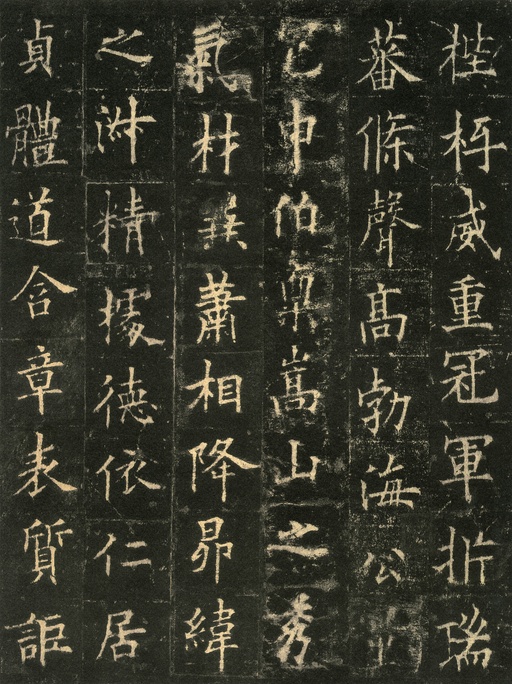 梐枑威重冠軍析瑞
蕃條聲高勃海公
包申伯稟嵩山之秀
氣材兼蕭相降昴緯
之淑精據德依仁居
貞體道含章表質詎